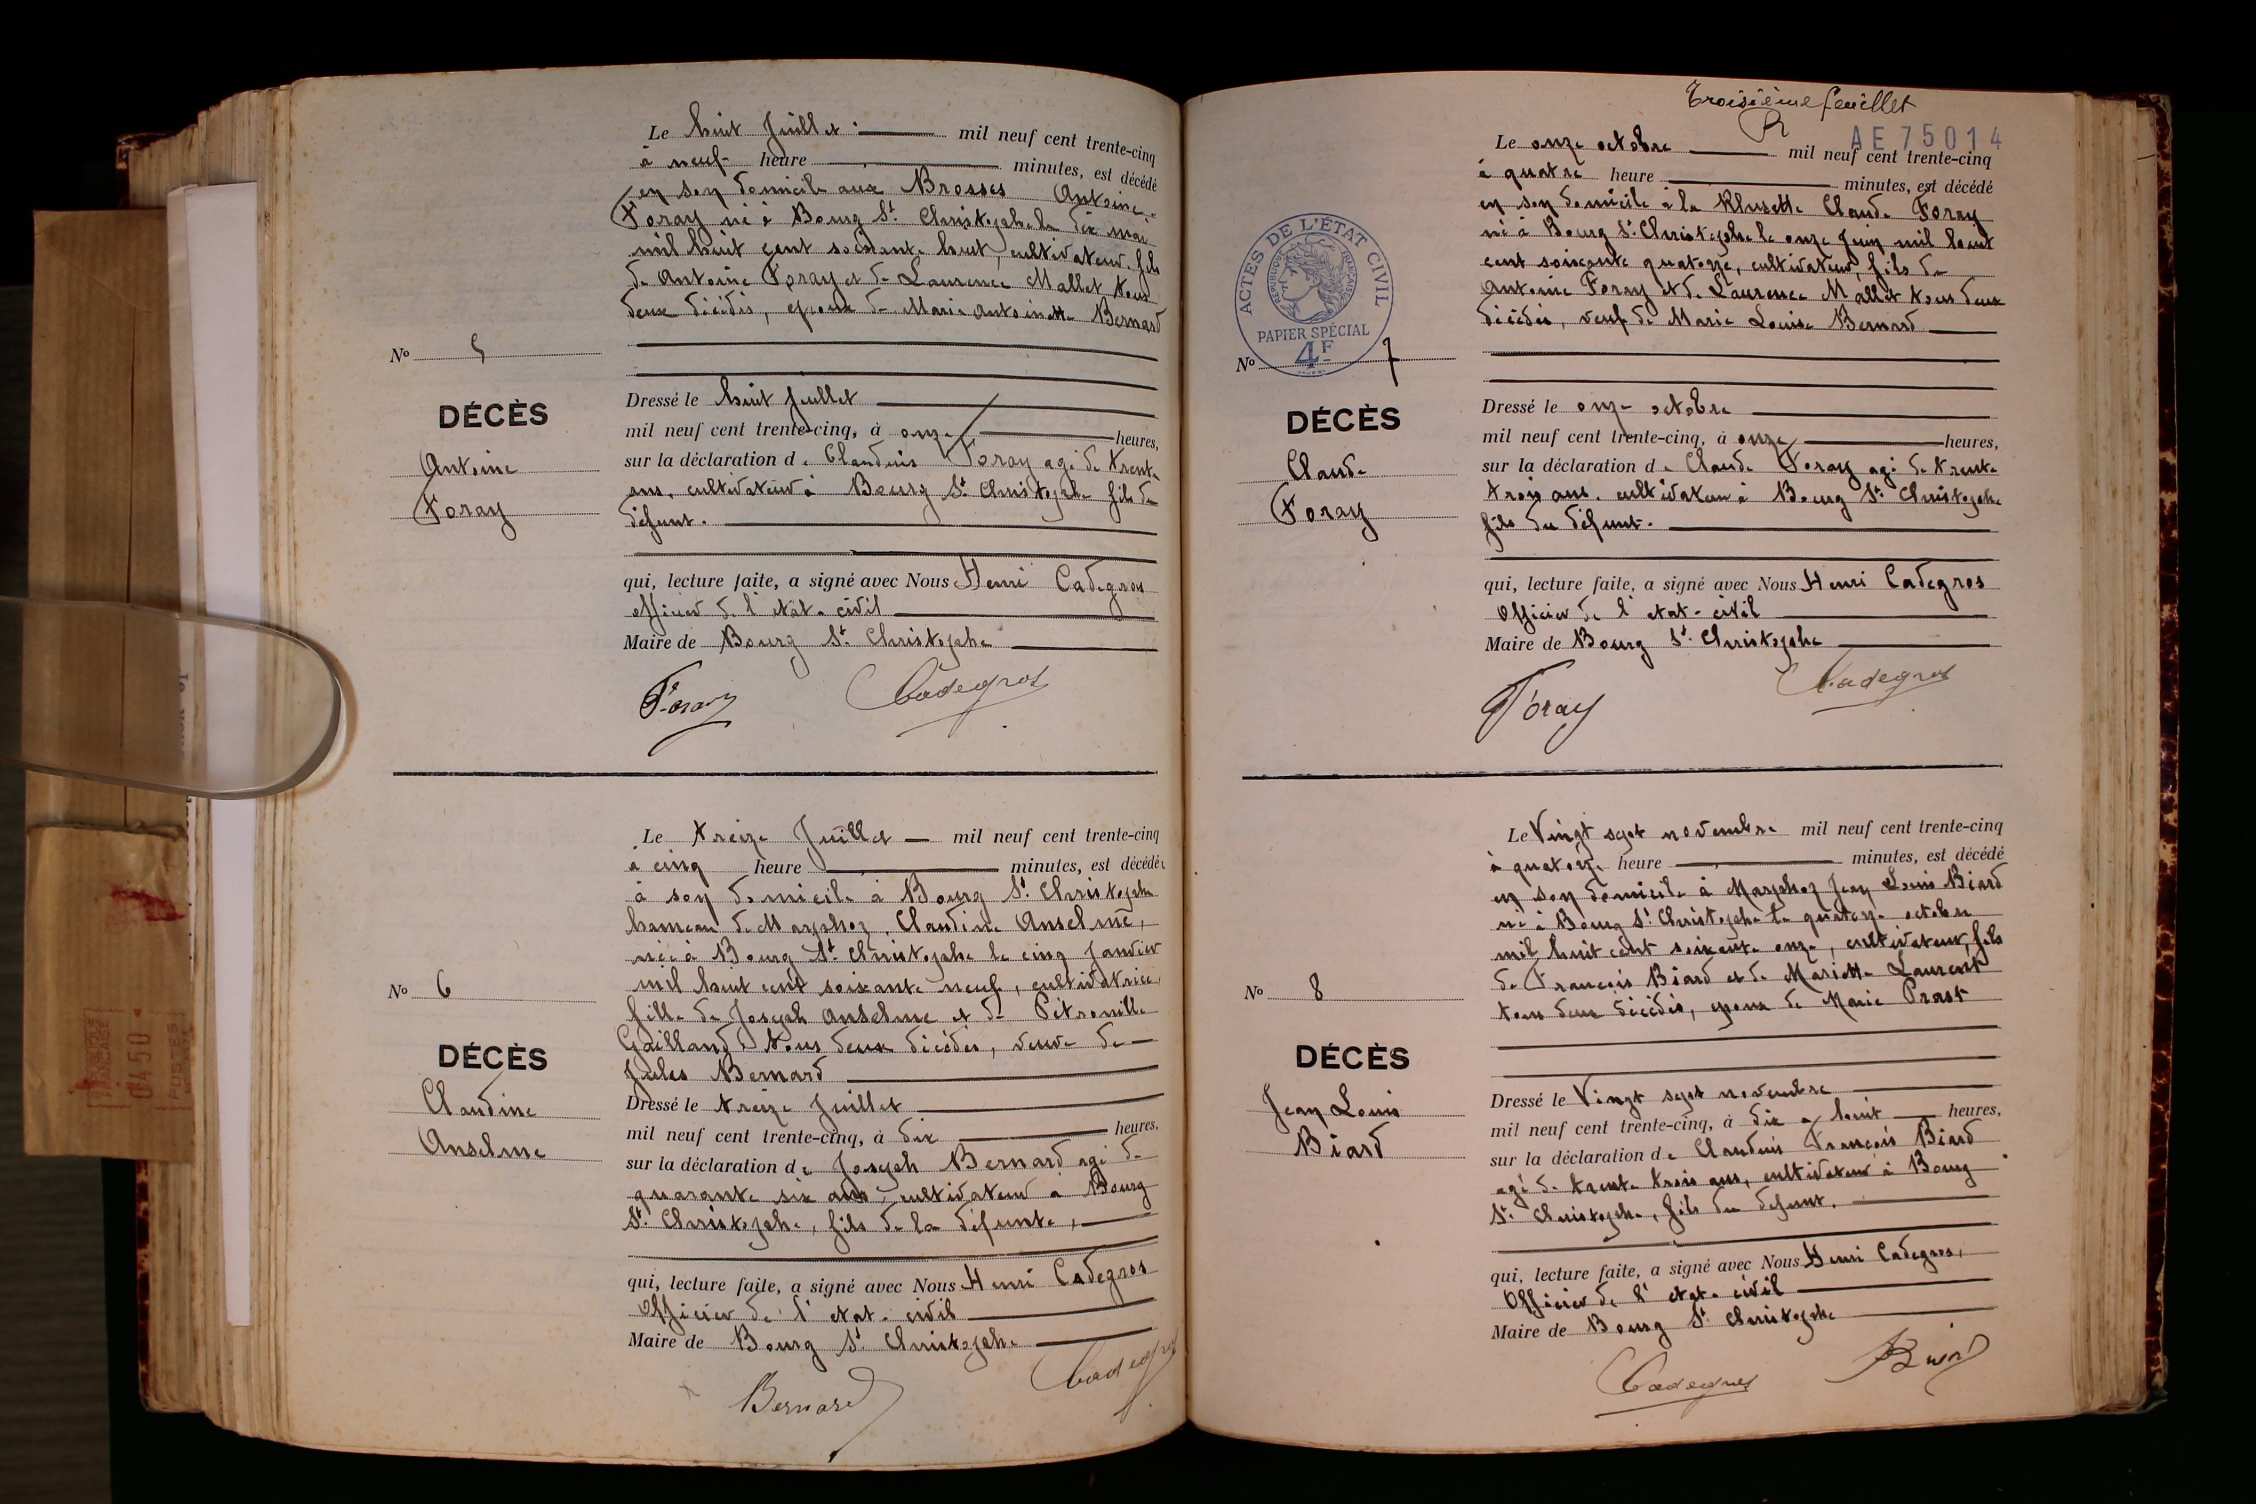 Le huit Juillet mil neuf cent trente-cinq
à neuf heure minutes, est décédé
en son domicile aux Brosses Antoine
Foray né à Bourg St. Christophe le dix mai
mil huit cent soixante huit, cultivateur, fils
de Antoine Foray et de Laurence Mallet tous
deux décédés, époux de Marie Antoinette Bernard
No 5
DÉCÈS
Antoine
Foray
Dressé le huit Juillet
mil neuf cent trente-cinq, à onze heures,
sur la déclaration de Claudius Foray agé de trente
ans, cultivateur à Bourg St. Christophe fils du
défunt.
qui, lecture faite, a signé avec Nous Henri Cadegros
officier de l'état-civil
Maire de Bourg St. Christophe
Foray Cadegros
Le treize Juillet mil neuf cent trente-cinq
à cinq heure minutes, est décédée
à son domicile à Bourg St. Christophe
hameau de Marphoz, Claudine Anselme,
née à Bourg St. Christophe le cinq Janvier
mil huit cent soixante neuf, cultivatrice,
fille de Joseph Anselme et de Pétronille
Gailland tous deux décédés, veuve de
Jules Bernard
No 6
DÉCÈS
Claudine
Anselme
Dressé le treize Juillet
mil neuf cent trente-cinq, à dix heures.
sur la déclaration de Joseph Bernard agé de
quarante six ans, cultivateur à Bourg
St. Christophe, fils de la défunte,
qui, lecture faite, a signé avec Nous Henri Cadegros
Officier de l'etat-civil
Maire de Bourg St. Christophe
Bernard Cadegros
Troisième feuillet
AE 75014
Le onze octobre mil neuf cent trente-cinq
à quatre heure minutes, est décédé
en son domicile à la Claude Foray
né à Bourg St. Christophe le onze Juin mil huit
cent soixante quatorze, cultivateur, fils de
Antoine Foray et de Laurence Mallet tous deux
décédés, veuf de Marie Louise Bernard
ACTES DE L'ÉTAT CIVIL
RÉPUBLIQUE FRANÇAISE
PAPIER SPÉCIAL
4F
No 7
DÉCÈS
Claude
Foray
Dressé le onze octobre
mil neuf cent trente-cinq, à onze heures,
sur la déclaration de Claude Foray agé de trente
trois ans, cultivateur à Bourg St. Christophe
fils du défunt.
qui, lecture faite, a signé avec Nous Henri Cadegros
Officier de l'etat-civil
Maire de Bourg St. Christophe
Foray Cadegros
Le Vingt sept novembre mil neuf cent trente-cinq
à quatorze heure minutes, est décédé
en son domicile à Marphoz Jean Louis Biard
né à Bourg St. Christophe le quatorze octobre
mil huit cent soixante onze, cultivateur, fils
de François Biard et de Mariette Laurent
tous deux décédés, époux de Marie Prost
No 8
DÉCÈS
Jean Louis
Biard
Dressé le Vingt sept novembre
mil neuf cent trente-cinq, à dix huit heures,
sur la déclaration de Claudius François Biard
agé de trente trois ans, cultivateur à Bourg
St. Christophe, fils du défunt.
qui, lecture faite, a signé avec Nous Henri Cadegros,
Officier de l'etat-civil
Maire de Bourg St. Christophe
Cadegros Biard